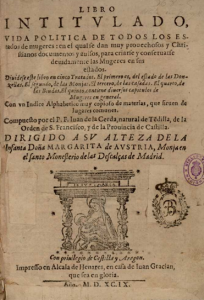 LIBRO
INTITVLADO,
VIDA POLITICA DE TODOS LOS ES-
tados de mugeres: en el qual se dan muy prouechosos y Chri-
stianos documentos y auisos, para criarse y conseruarse
deuidamente las Mugeres en sus
estados.
Diuidese este libro en cinco Tratados. El primero es, del estado de las Don-
zellas. El segundo, de las Monjas. El tercero, de las Casadas. El quarto, de
las Biudas. El quinto, contiene diuersos capitulos de
Mugeres en general.
Con vn Indice Alphabetico muy copioso de materias, que siruen de
lugares comunes.
Compuesto por el P. F. Iuan de la Cerda, natural de Tēdilla, de
la Orden de S. Francisco, y de la Prouincia de Castilla.
DIRIGIDO A SV ALTEZA DE LA
Infanta Doña MARGARITA de AVSTRIA, Monja en
el santo Monesterio de las Descalças de Madrid.
Con priuilegio de Castilla, y Aragon.
Impresso en Alcala de Henares, en casa de Iuan Gracian,
que sea en gloria.
Año, M.D.XC.IX.